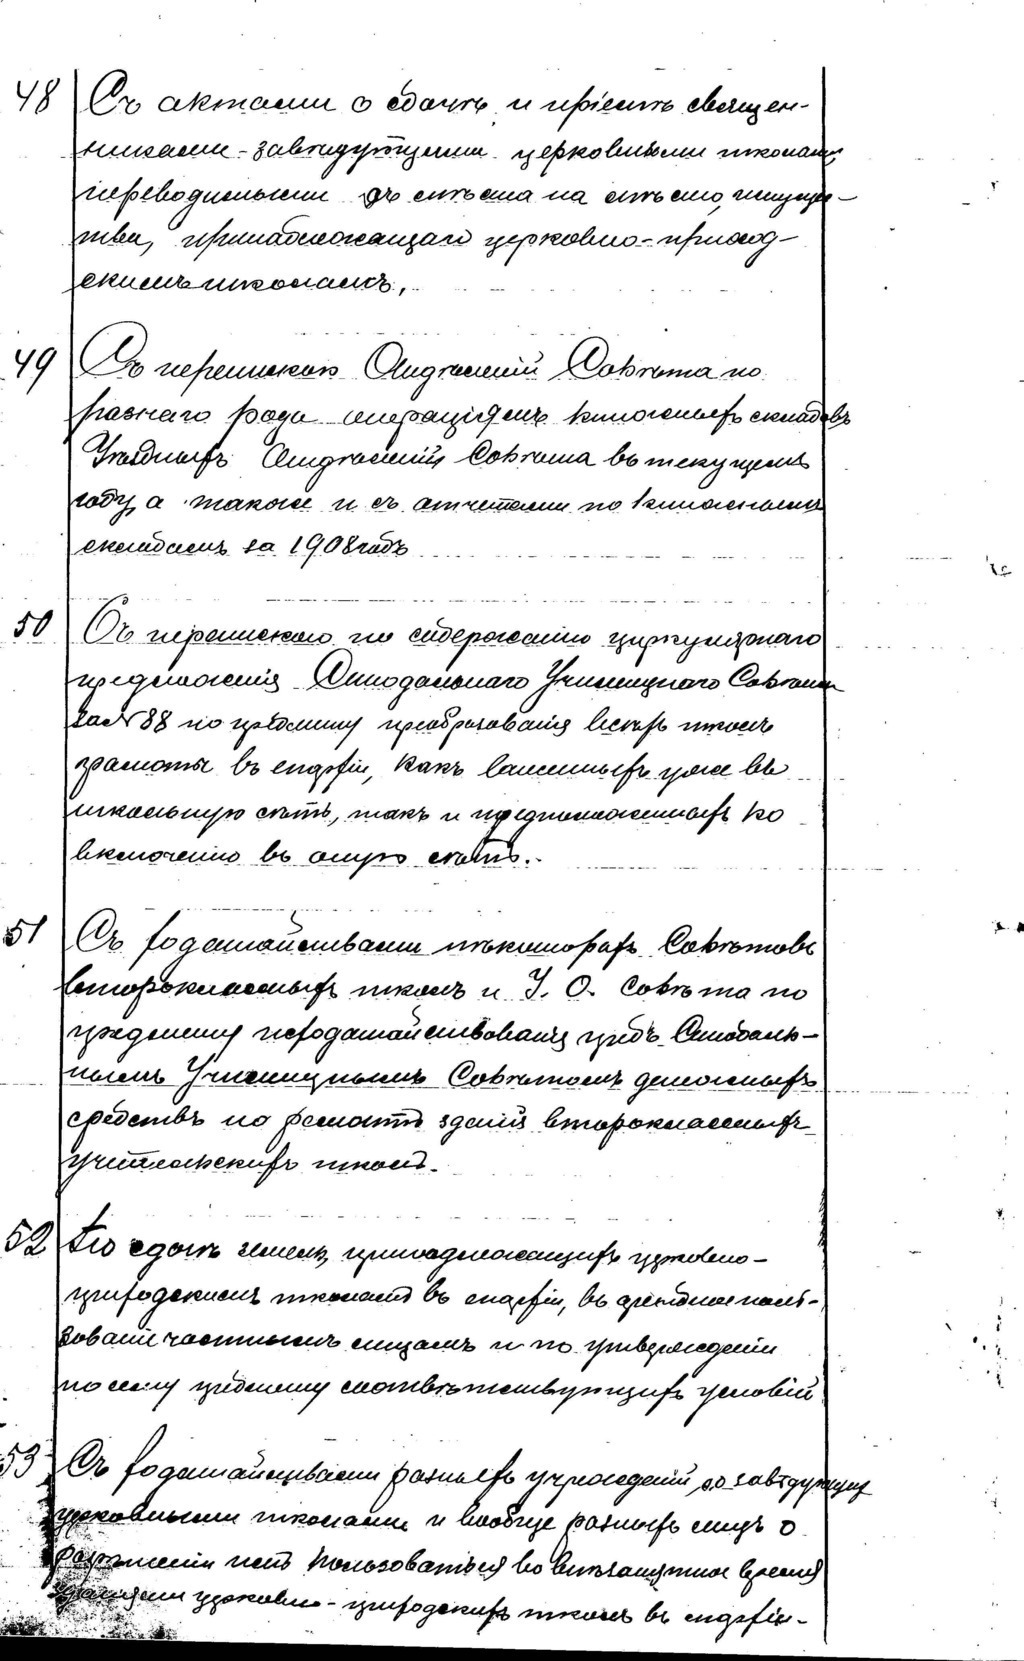 48 Съ актами о сдачѣ и пріемѣ священ-
никами-завѣдующими церковными школами
переводимыми съ мѣста на мѣсто, имущес-
тва, принадлежащаго церковно-приход-
скимъ школамъ.
49 Съ перепискою Епархіальнаго Совѣта по
разнаго рода операціямъ книжныхъ складовъ
Уѣздныхъ Отдѣленій Совѣта въ текущемъ
году, а также и съ отчетами по книжнымъ
складамъ за 1908 годъ
50 Съ перепискою по содержанію циркулярнаго
предложенія Синодальнаго Училищнаго Совѣта
за № 88 по предмету преобразованія всѣхъ школъ
грамоты въ епархіи, какъ внесенныхъ уже въ
школьную сѣть, такъ и предположенныхъ ко
включенію въ оную сѣть.
51 Съ ходатайствами нѣкоторыхъ Совѣтовъ
второклассныхъ школъ и У. О. Совѣта по
предмету исходатайствованія предъ Синодаль-
нымъ Училищнымъ Совѣтомъ денежныхъ
средствъ на ремонтъ зданій второклассныхъ
учительскихъ школъ.
52 По сдачѣ земель, принадлежащихъ церковно-
приходскимъ школамъ въ епархіи, въ арендное поль-
зованіе частнымъ лицамъ и по утвержденіи
по сему предмету соотвѣтствующихъ условій
53 Съ ходатайствами разныхъ учрежденій, о.о. завѣдующ
церковными школами и вообще разныхъ лицъ о
разрѣшеніи имъ пользоваться во внѣклассное время
зданіями церковно-приходскихъ школъ въ епархіи-